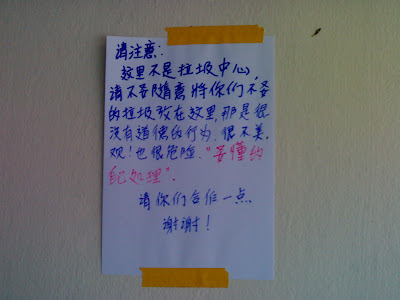 请注意:
这里不是垃圾中心,
请不要随意将你们不要
的垃圾放在这里,那是很
没有道德的行为.很不美.
观!也很危险."要懂的
自己处理".
请你们合作一点.
谢谢!